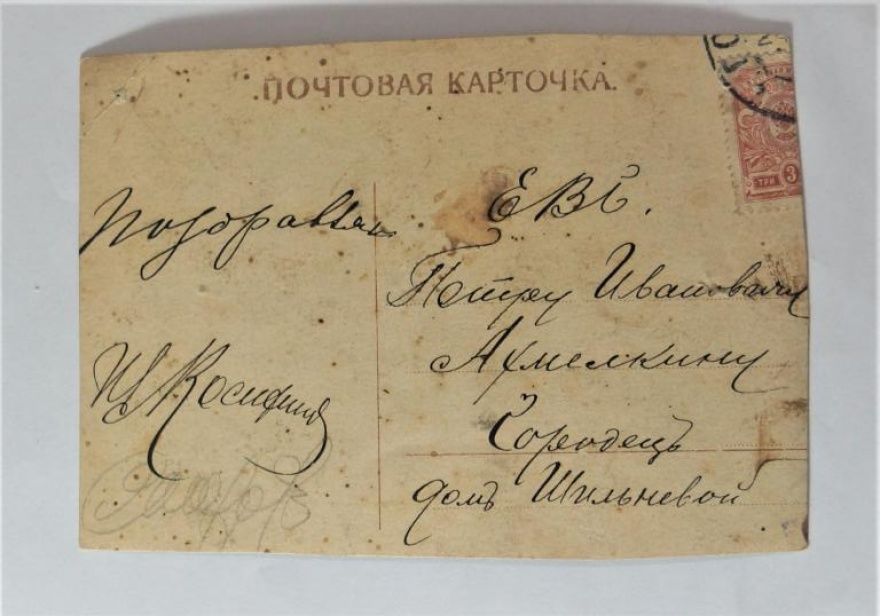 ПОЧТОВАЯ КАРТОЧКА.
Поздравляю
ЕВБ.
Петру Ивановичу
Ахмелкину
Городецъ
домъ Шильневой
ТРИ 3